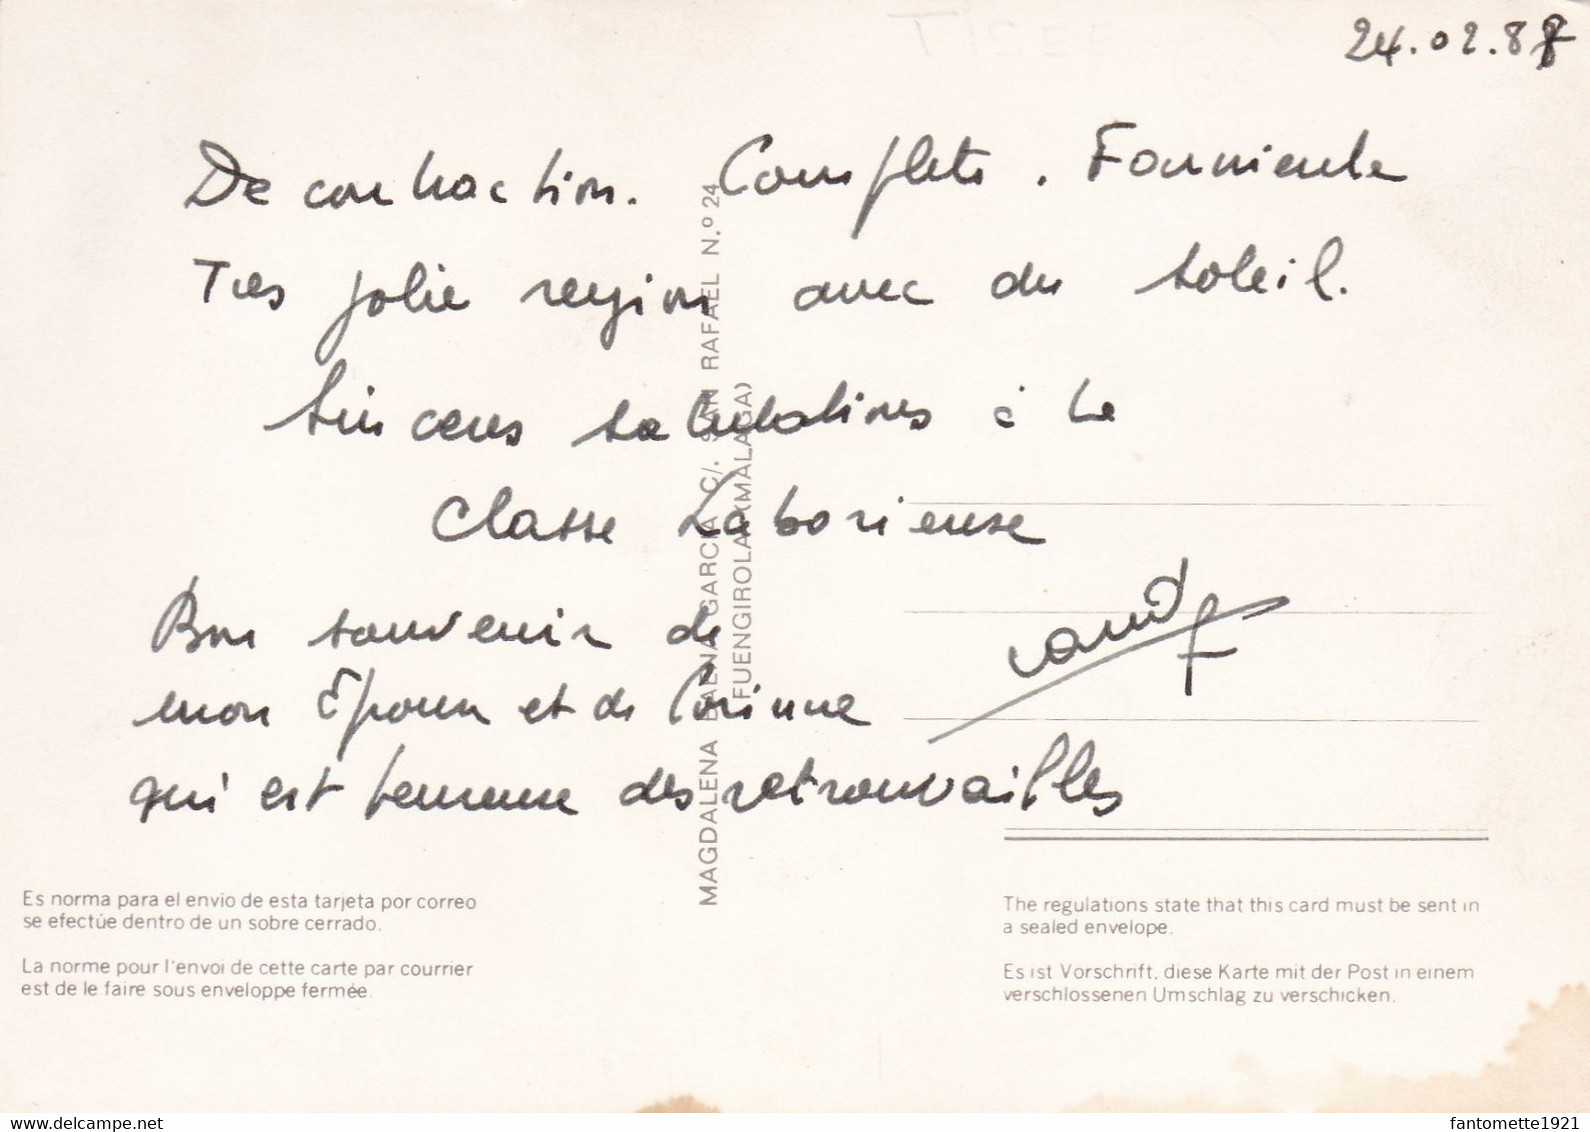 24.02.87
Decontraction. Complete. Farniente
Tres jolie region avec du soleil.
Sinceres salutations à la
Classe Laborieuse
Bon souvenir de
mon Epoux et de Corinne
qui est heureuse des retrouvailles
MAGDALENA BAENA GARCIA C/. SAN RAFAEL N.º 24
FUENGIROLA (MALAGA)
Es norma para el envío de esta tarjeta por correo
se efectúe dentro de un sobre cerrado.
La norme pour l'envoi de cette carte par courrier
est de le faire sous enveloppe fermée.
The regulations state that this card must be sent in
a sealed envelope.
Es ist Vorschrift, diese Karte mit der Post in einem
verschlossenen Umschlag zu verschicken.
delcampe.net
fantomette1921